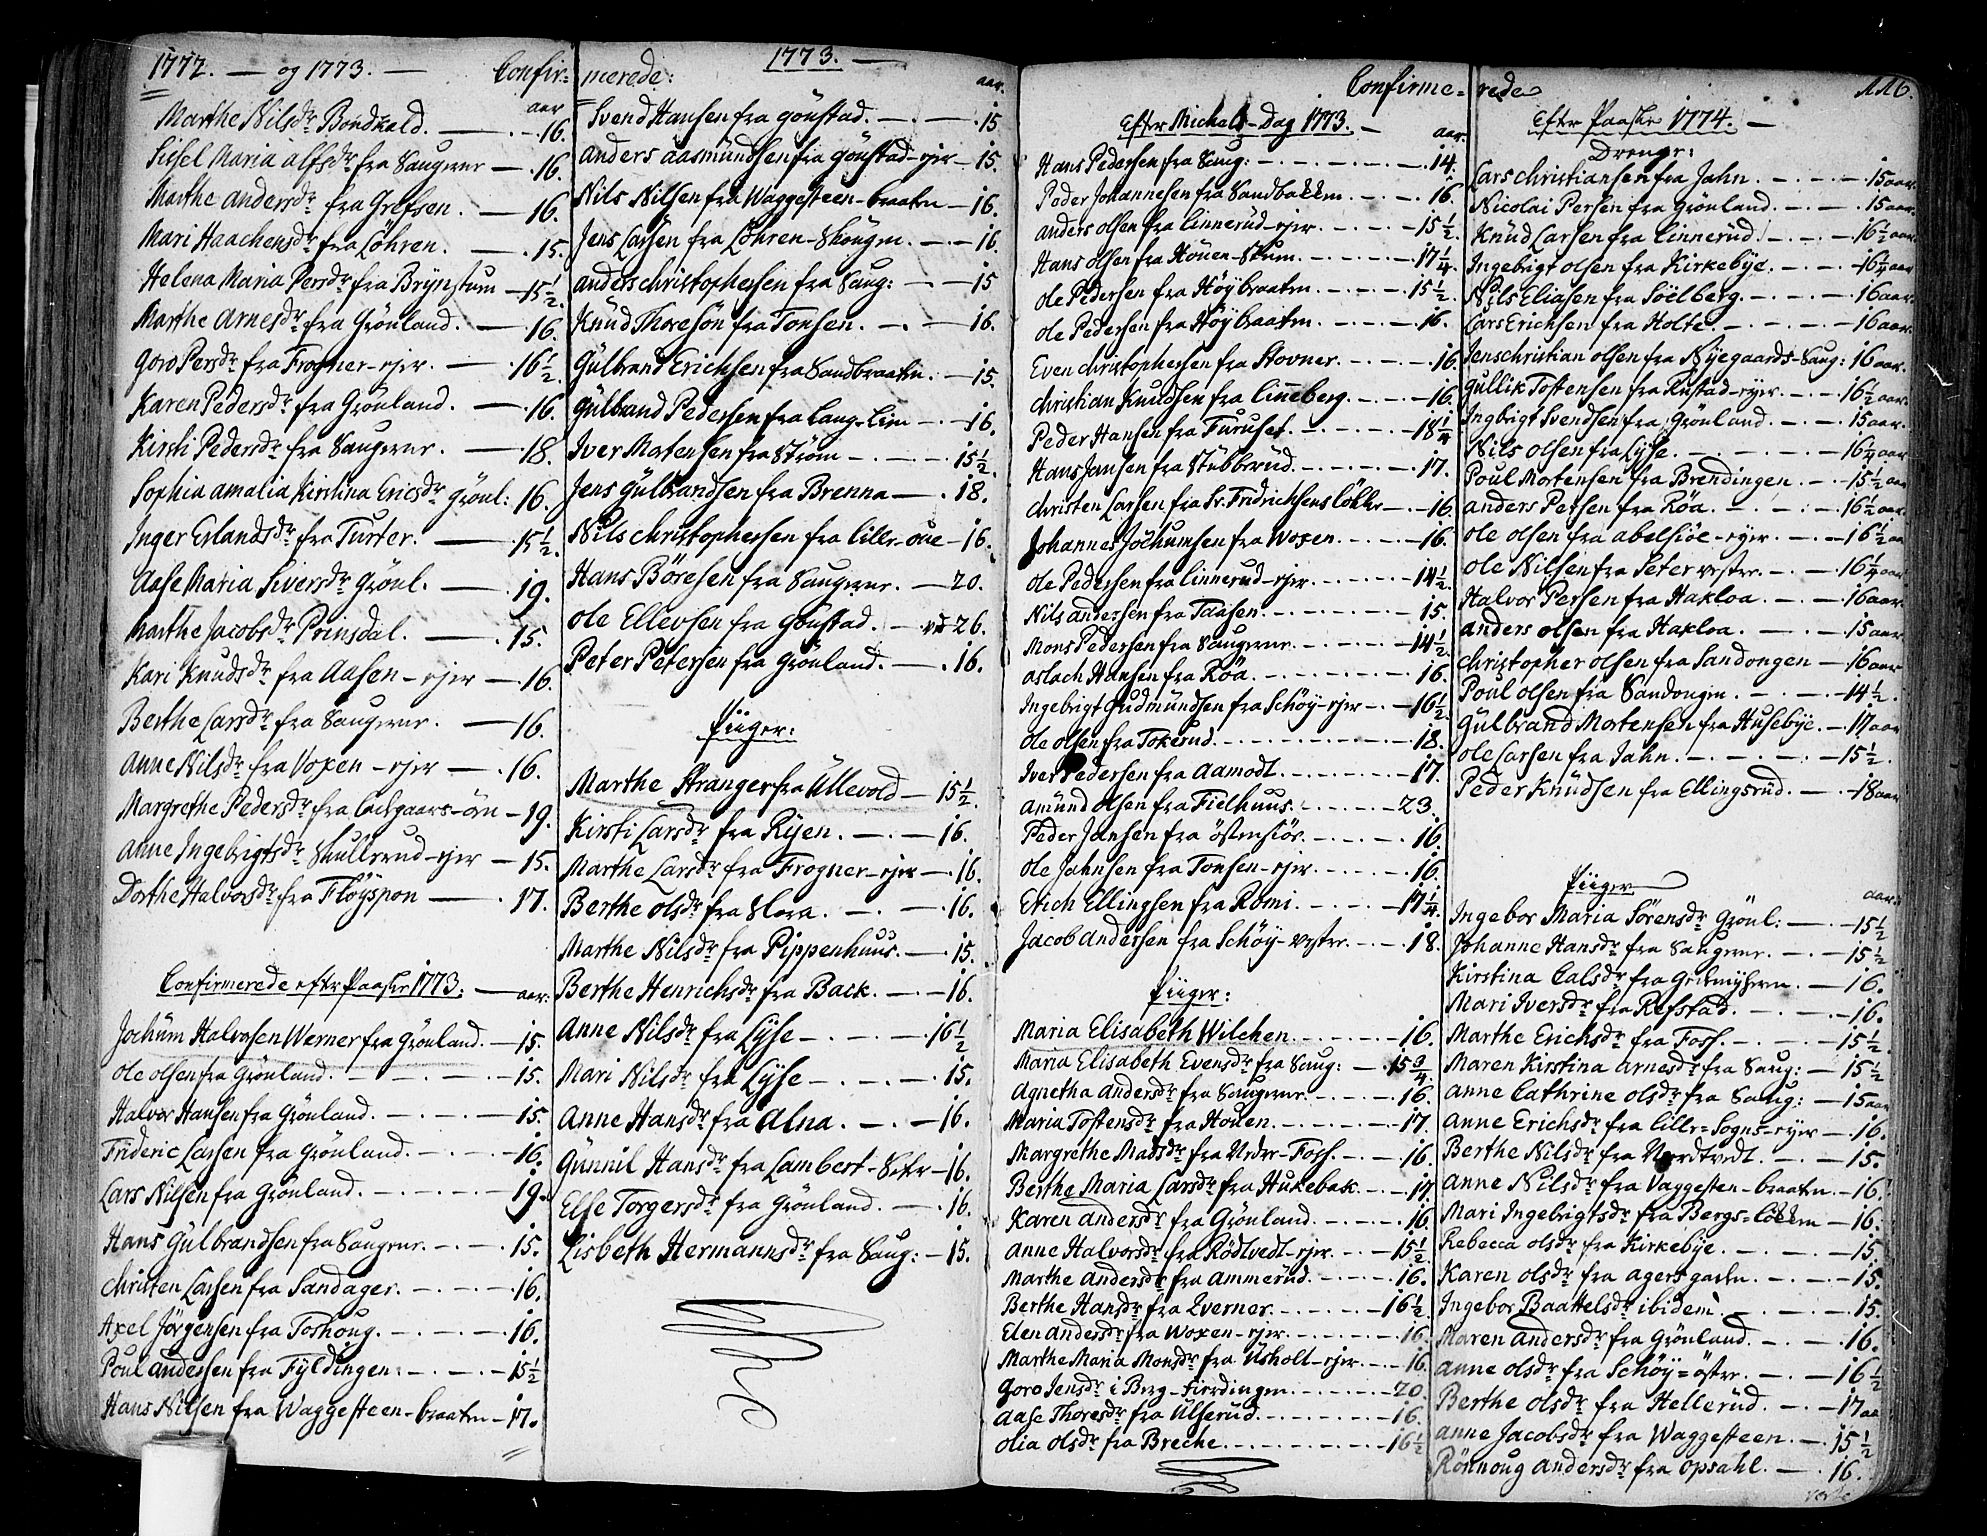 1772. — og 1773. — Confir=
aar
Marthe Nilsdr Bondkald. — 16.
Sissel Maria alfsdr fra Saugerner — 16.
Marthe andersdr fra Grefsen. — 16.
Mari Haachensdr fra Löhren. — 15.
Helena Maria Persdr fra Brynsturn — 15 1/2.
Marthe Arnesdr fra Grönland. — 16.
Goro Persdr fra Frogner-ejer. — 16 1/2.
Karen Pedersdr fra Grönland. — 16.
Kirsti Pedersdr fra Saugerner. — 18.
Sophia amalia Kirstina Ericsdr Grönl: 16.
Inger Erlandsdr fra Turter. — 15 1/2.
Aase Maria Siversdr Grönl. — 19.
Marthe Jacobsdr Prinsdal. — 15.
Kari Knudsdr fra Aasen-ejer — 16.
Berthe Larsdr fra Saugerner. — 16.
Anne Nilsdr fra Voxen-ejer — 16.
Margrethe Pedersdr fra — 19.
Anne Ingebrigtsdr Skullerud-ejer — 15.
Dorthe Halvorsdr fra Flöyspon — 17.
Confirmerede efter Paaske 1773: — aar.
Jochum Halvorsen Werner fra Grönland. — 15.
Ole olsen fra Grönland. — 15.
Halvor Hansen fra Grönland. — 15.
Frideric Larsen fra Grönland. — 16.
Lars Nilsen fra Grönland. — 19.
Hans Gulbrandsen fra Saugerner. — 15.
Christen Larsen fra Sandager. — 16.
Axel Jörgensen fra Toshoug. — 16.
Poul andersen fra Fyldingen: — 15 1/2
Hans Nilsen fra Waggesteen-braaten — 17.
merede: 1773. —
aar.
Svend Hansen fra gönstad. — 15
Anders aasmundsen fra gönstad-ejer — 15.
Nils Nilsen fra Waggesteen-braaten — 16.
Jens Larsen fra Löhren-Skougen. — 16
anders christophersen fra Saug: — 15
Knud Thoresön fra Tonsen. — 16.
Gulbrand Erichsen fra Sandbraaten. — 15.
Gulbrand Pedersen fra Lang-Lien — 16.
Iver Mortensen fra Ström — 15 1/2.
Jens Gulbrandsen fra Brenna — 18.
Nils christophersen fra Lille-oue — 16.
Hans Böresen fra Saugerner. — 20.
Ole Ellevsen fra Goustad. — ved 26.
Peter Petersen fra Grönland. — 16.
Piiger:
Marthe Stranger fra Ullevold — 15 1/2.
Kirsti Larsdr fra Ryen. — 16.
Marthe Larsdr fra Frogner-ejer — 16.
Berthe olsdr fra Slora. — 16.
Marthe Nilsdr fra Pippenhuus. — 15.
Berthe Henrichsdr fra Back. — 16.
Anne Nilsdr fra Lyse — 16 1/2
Mari Nilsdr fra Lyse — 15.
Anne Hansdr fra Alna. — 16.
Gunnil Hansdr fra Lambert-Seter — 16.
Else Torgersdr fra Grönland. — 16.
Lisbeth Hermannsdr fra Saug: — 15.
Confirme=
Efter Michels-Dag 1773. — aar.
Hans Pedersen fra Saug: — 14.
Peder Johannesen fra Sandbakken. — 16.
anders olsen fra Linnerud-ejer. — 15 1/2.
Hans olsen fra Houen-Skum. — 17 1/4.
Ole Pedersen fra Höybraaten. — 15 1/2.
Ole Pedersen fra Höybraaten. — 16.
Even christophersen fra Stovner. — 16
christian Knudsen fra Linneberg. — 16.
Peder Hansen fra Furuset. — 18 1/4
Hans Jansen fra Stubberud. — 17.
Christen Larsen fra Sr. Fridrichsens lökke — 16.
Johannes Jochumsen fra Woxen. — 16.
Ole Pedersen fra Linnerud-ejer. — 14 1/2.
Nils andersen fra Taasen. — 15.
Mons Pedersen fra Saugerner. — 14 1/2.
aslach Hansen fra Röa. — 16.
Ingebrigt Gudmundsen fra Schöy-ejer — 16 1/2
Ole olsen fra Tokerud. — 18.
Iver Pedersen fra Aamodt. — 17.
Amund olsen fra Fielhuus. — 23.
Peder Jansen fra östensiör. — 16.
Ole Jahnsen fra Tonsen-ejer. — 16.
Erich Ellingsen fra Romi. — 17 1/4.
Jacob andersen fra Schöy-vestre. — 18.
Piiger:
Maria Elisabeth Wilchen. — 16.
Maria Elisabeth Evensdr fra Saug: — 15 3/4.
Agnetha andersdr fra Saugerner. — 16.
Maria Tostensdr fra Houen. — 17.
Margrethe Madsdr fra Neder-Foss. — 16.
Berthe Maria Larsdr fra Hukebak. — 17.
Karen andersdr fra Grönland. — 16.
Anne Halvorsdr fra Rödtvedt-ejer. — 15 1/2
Marthe andersdr fra ammerud. — 16.
Berthe Hansdr fra Qverner. — 16 1/2
Elen andersdr fra Woxen-ejer. — 16.
Marthe Maria Monsdr fra Usholt-ejer. — 16.
Goro Jensdr i Berg-Fierdingen. — 20.
Aase Thoresdr fra Ulserud. — 16.
Olia olsdr fra Breche. — 16 1/2
rede 116.
Efter Paaske 1774. —
Drenge:
Lars christiansen fra Jahn. — 15 aar.
Nicolai Persen fra Grönland. — 15 aar.
Knud Larsen fra Linnerud. — 16 1/2 aar
Ingebrigt olsen fra Kirkebye. — 16 1/4 aar
Nils Eliasen fra Söelberg. — 16 aar.
Lars Erichsen fra Holte. — 16 aar
Jens christian olsen fra Nyegaards-Saug: 16 aar.
Gullik Tostensen fra Rustad-ejer. — 16 1/2 aar.
Ingbrigt Svendsen fra Grönland. — 15 aar.
Nils olsen fra Lyse. — 16 1/4 aar
Poul Mortensen fra Brendingen. — 15 1/2 aar
anders Persen fra Röa. — 16 1/2 aar.
Ole olsen fra abelsiöe-ejer. — 16 1/2 aar
Ole Nilsen fra — 16 1/4 aar.
Halvor Persen fra Hakloa. — 16 aar.
anders olsen fra Hakloa. — 15 aar
christopher olsen fra Sandongen — 16 aar
Poul olsen fra Sandongen. — 14 1/2.
Gulbrand Mortensen fra Husebye. — 17 aar
Ole Larsen fra Jahn. — 15 1/2.
Peder Knudsen fra Ellingsrud. — 18 aar
Piiger aar.
Ingebor Maria Sörensdr Grönl: — 15 1/2
Johanne Hansdr fra Saugerner. — 15 1/2
Kirstina Calsdr fra — 16.
Mari Iversdr fra Refstad. — 16.
Marthe Erichsdr fra Foss. — 15 1/2.
Maren Kirstina Arnesdr fra Saug: — 15 1/2
Anne Cathrine olsdr fra Saug: — 15 aar
Anne Erichsdr fra Lille=Sogns-ejer — 16.
Berthe Nilsdr fra Nordtvedt. — 15.
Anne Nilsdr fra Vaggesten-braaten. — 16.
Mari Ingebrigtsdr fra Bergs=Lökken — 16.
Rebecca olsdr fra Kirkebye. — 15.
Karen olsdr fra agersgaten. — 15.
Ingebor Baattelsdr ibidem. — 15.
Maren andersdr fra Grönland. — 16.
Anne olsdr fra Schöy=östre. — 16 1/2
Berthe olsdr fra Hellerud. — 17 aar
Anne Jacobsdr fra Waggesteen. — 15 1/2
Rönnoug andersdr fra Opsahl. — 16.
verte